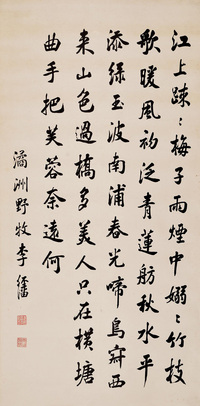 江上踈〻梅子雨煙中嫋〻竹枝
歌暖風初泛青蓮舫秋水平
添綠玉波南浦春光啼鳥寂西
来山色過橋多美人只在橫塘
曲手把芙蓉奈遠何
洲野牧李